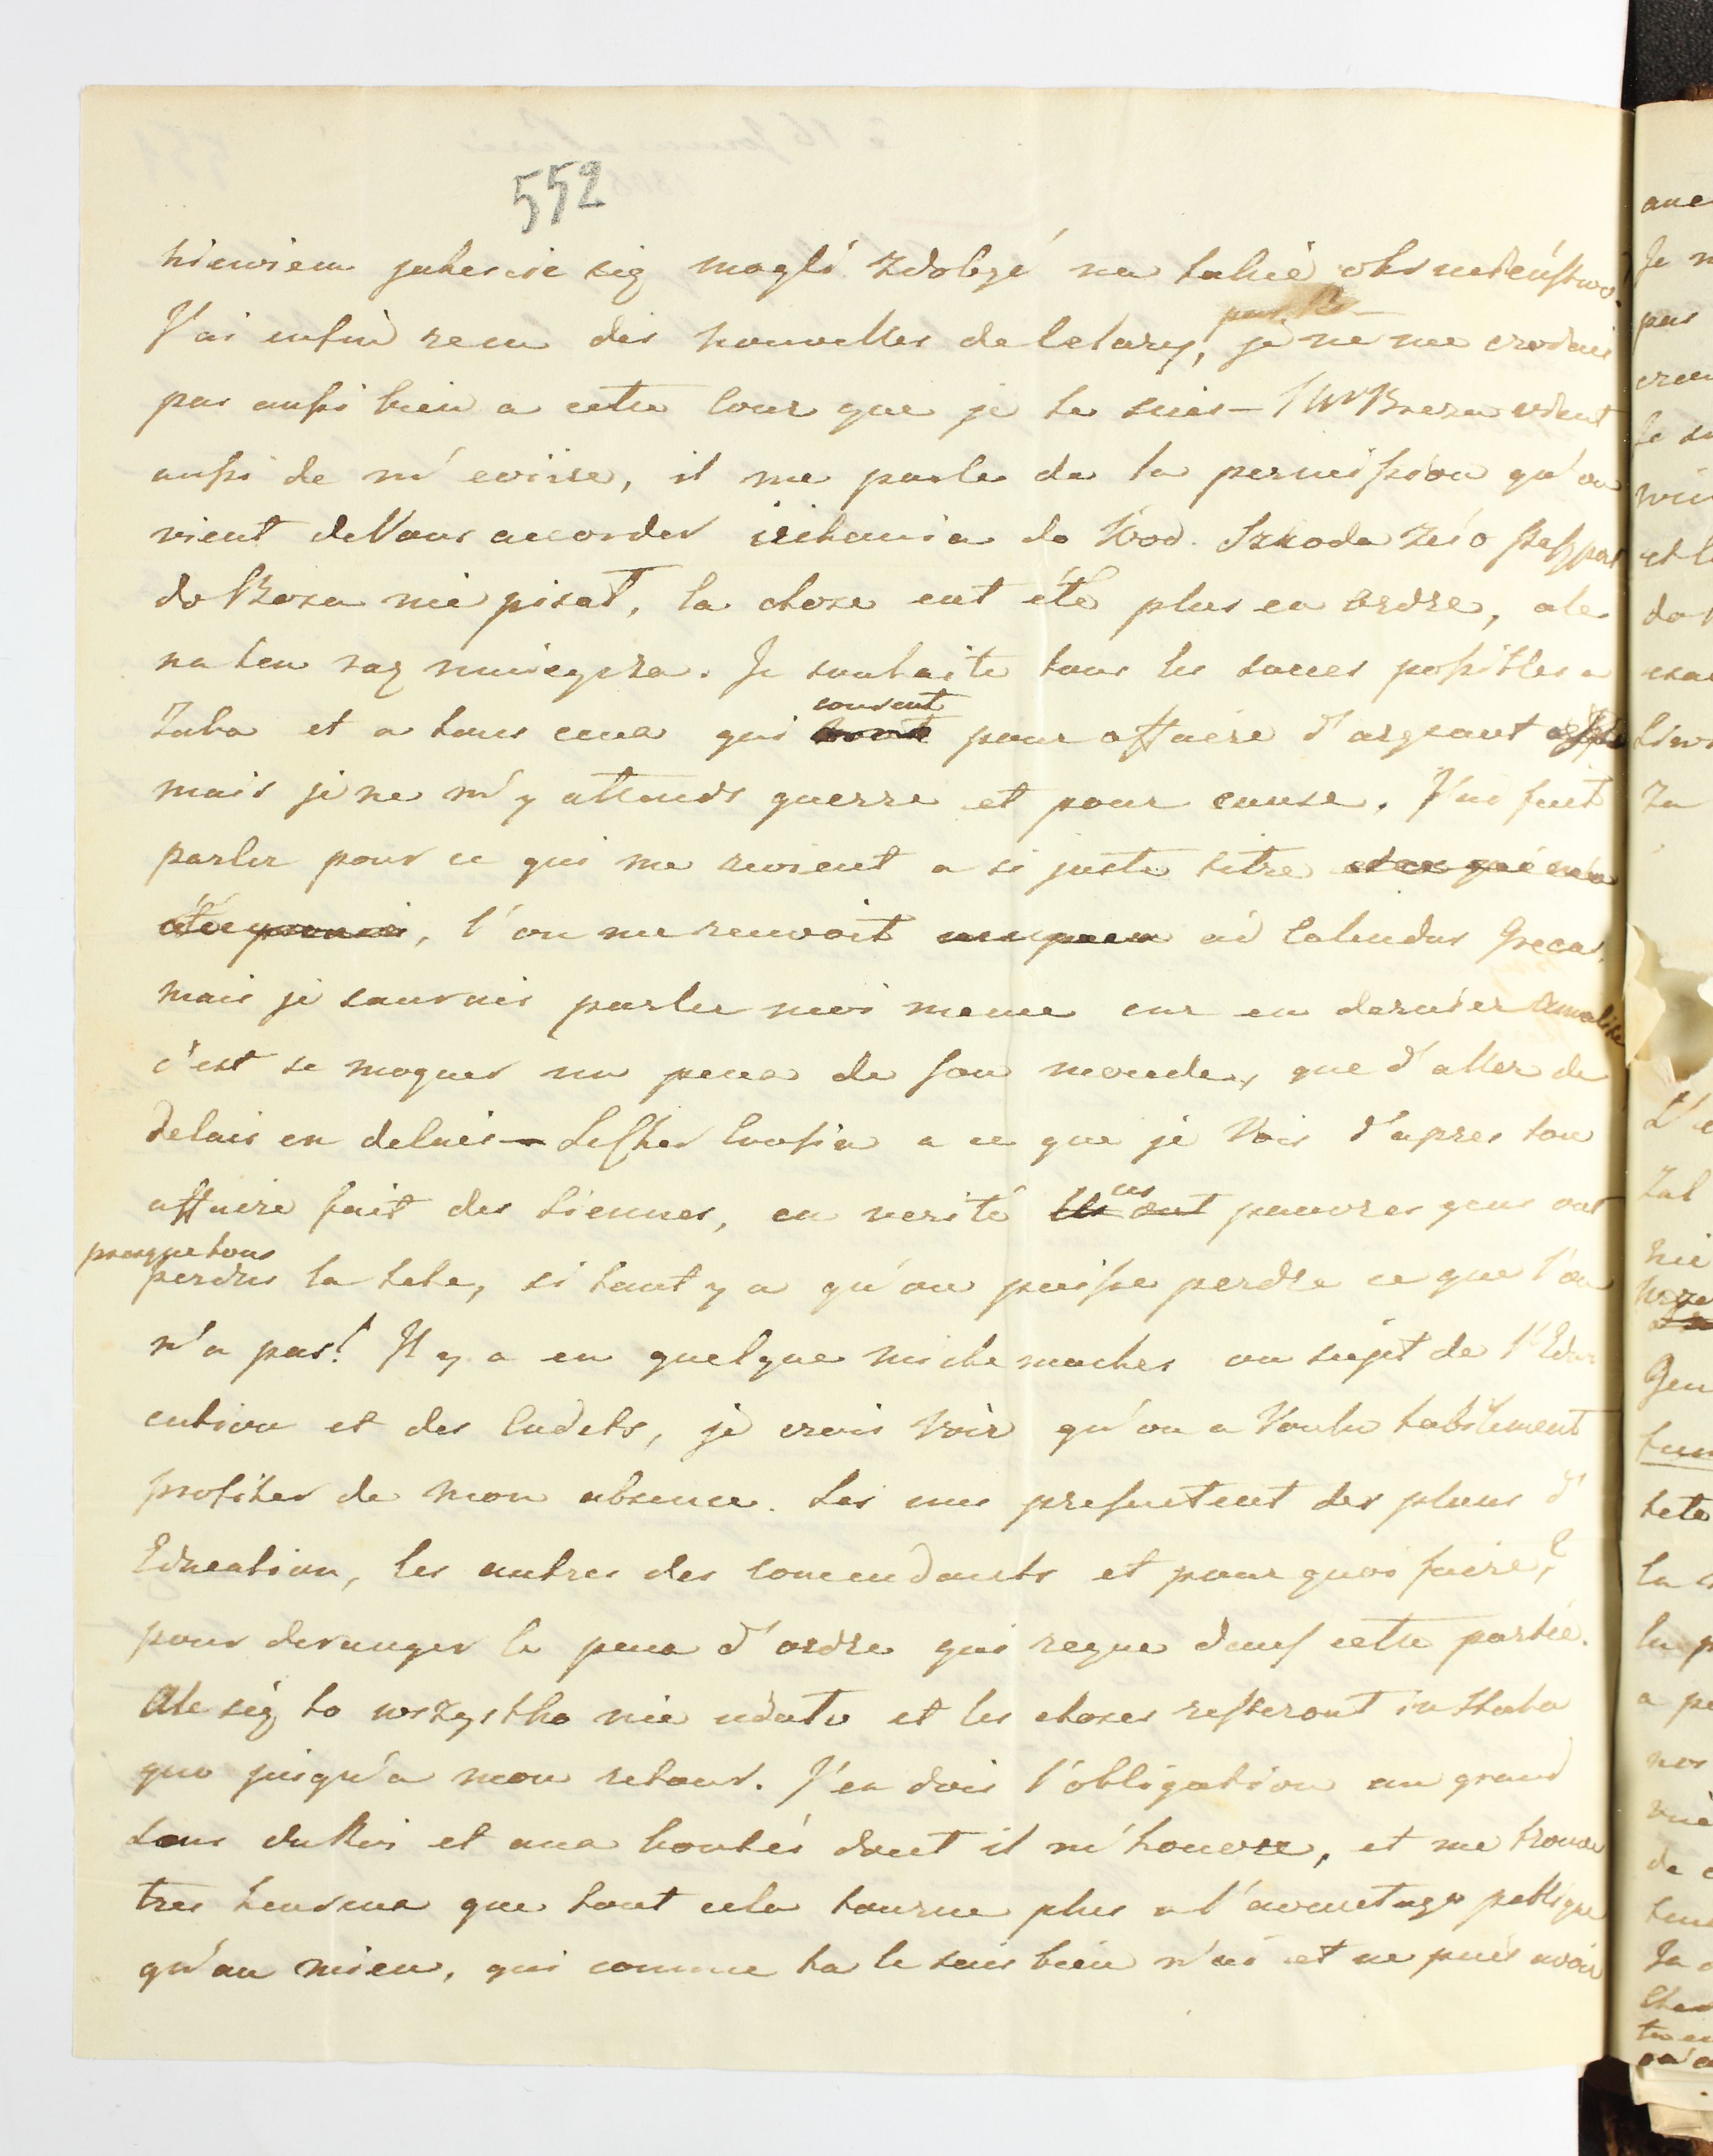 552
niewiem jakescie się mogli zdobyć na takie okrucieństwo.
J'ai enfin recu des nouvelles de Cetary, je ne me crodais
pas aussi bien a cette Cour que je le suis – Mr Breza vient
aussi de m'ecrire, il me parle de la permission qu'on
vient de Vous accorder iechania do Wod. Szkoda żeś o paszport
do Breza nie pisał, la chose eut été plus en ordre, ale
na ten raz mniejsza. Je souhaite tous les succes possibles a
Zuba et a tous ceux qui courent pour affaire d'argeant
mais je ne m'y attends guerre et pour cause. J'ai fait
parler pour ce qui me revient a si juste titre et ce qui m'a
été promis, l'on me renvoit ad Calendas Grecas,
mais je saurais parler moi meme car en dernier Analise
c'est se moquer un peux de son monde, que d'aller de
delais en delais – a ce que je Vois d'apres ton
affaire fait des siennes, en verité ces pauvres gens ont
presque tous
perdus la tete, si tant y a qu'on puisse perdre ce que l'on
n'a pas! Il y a eu quelque miche maches au sujet de l'Edu
cation et des Cadets, je crois Voir qu'on a Voulu habilement
profiter de mon absence. Les uns presentent des plans d'
Education, les autres des Comendants et pour quoi faire?
pour deranger le peux d'ordre qui regne dans cette partie.
Ale się to wszystko nie udato et les choses resteront in Statu
quo jusqu'a mon retour. J'en dois l'obligation au grand
sens du Roi et aux bontés dont il m'honore, et me trouve
tres heureux que tout cela tourne plus a l'avantage publique
qu'au mien, qui comme tu le sais bien n'ai et ne puis avoir